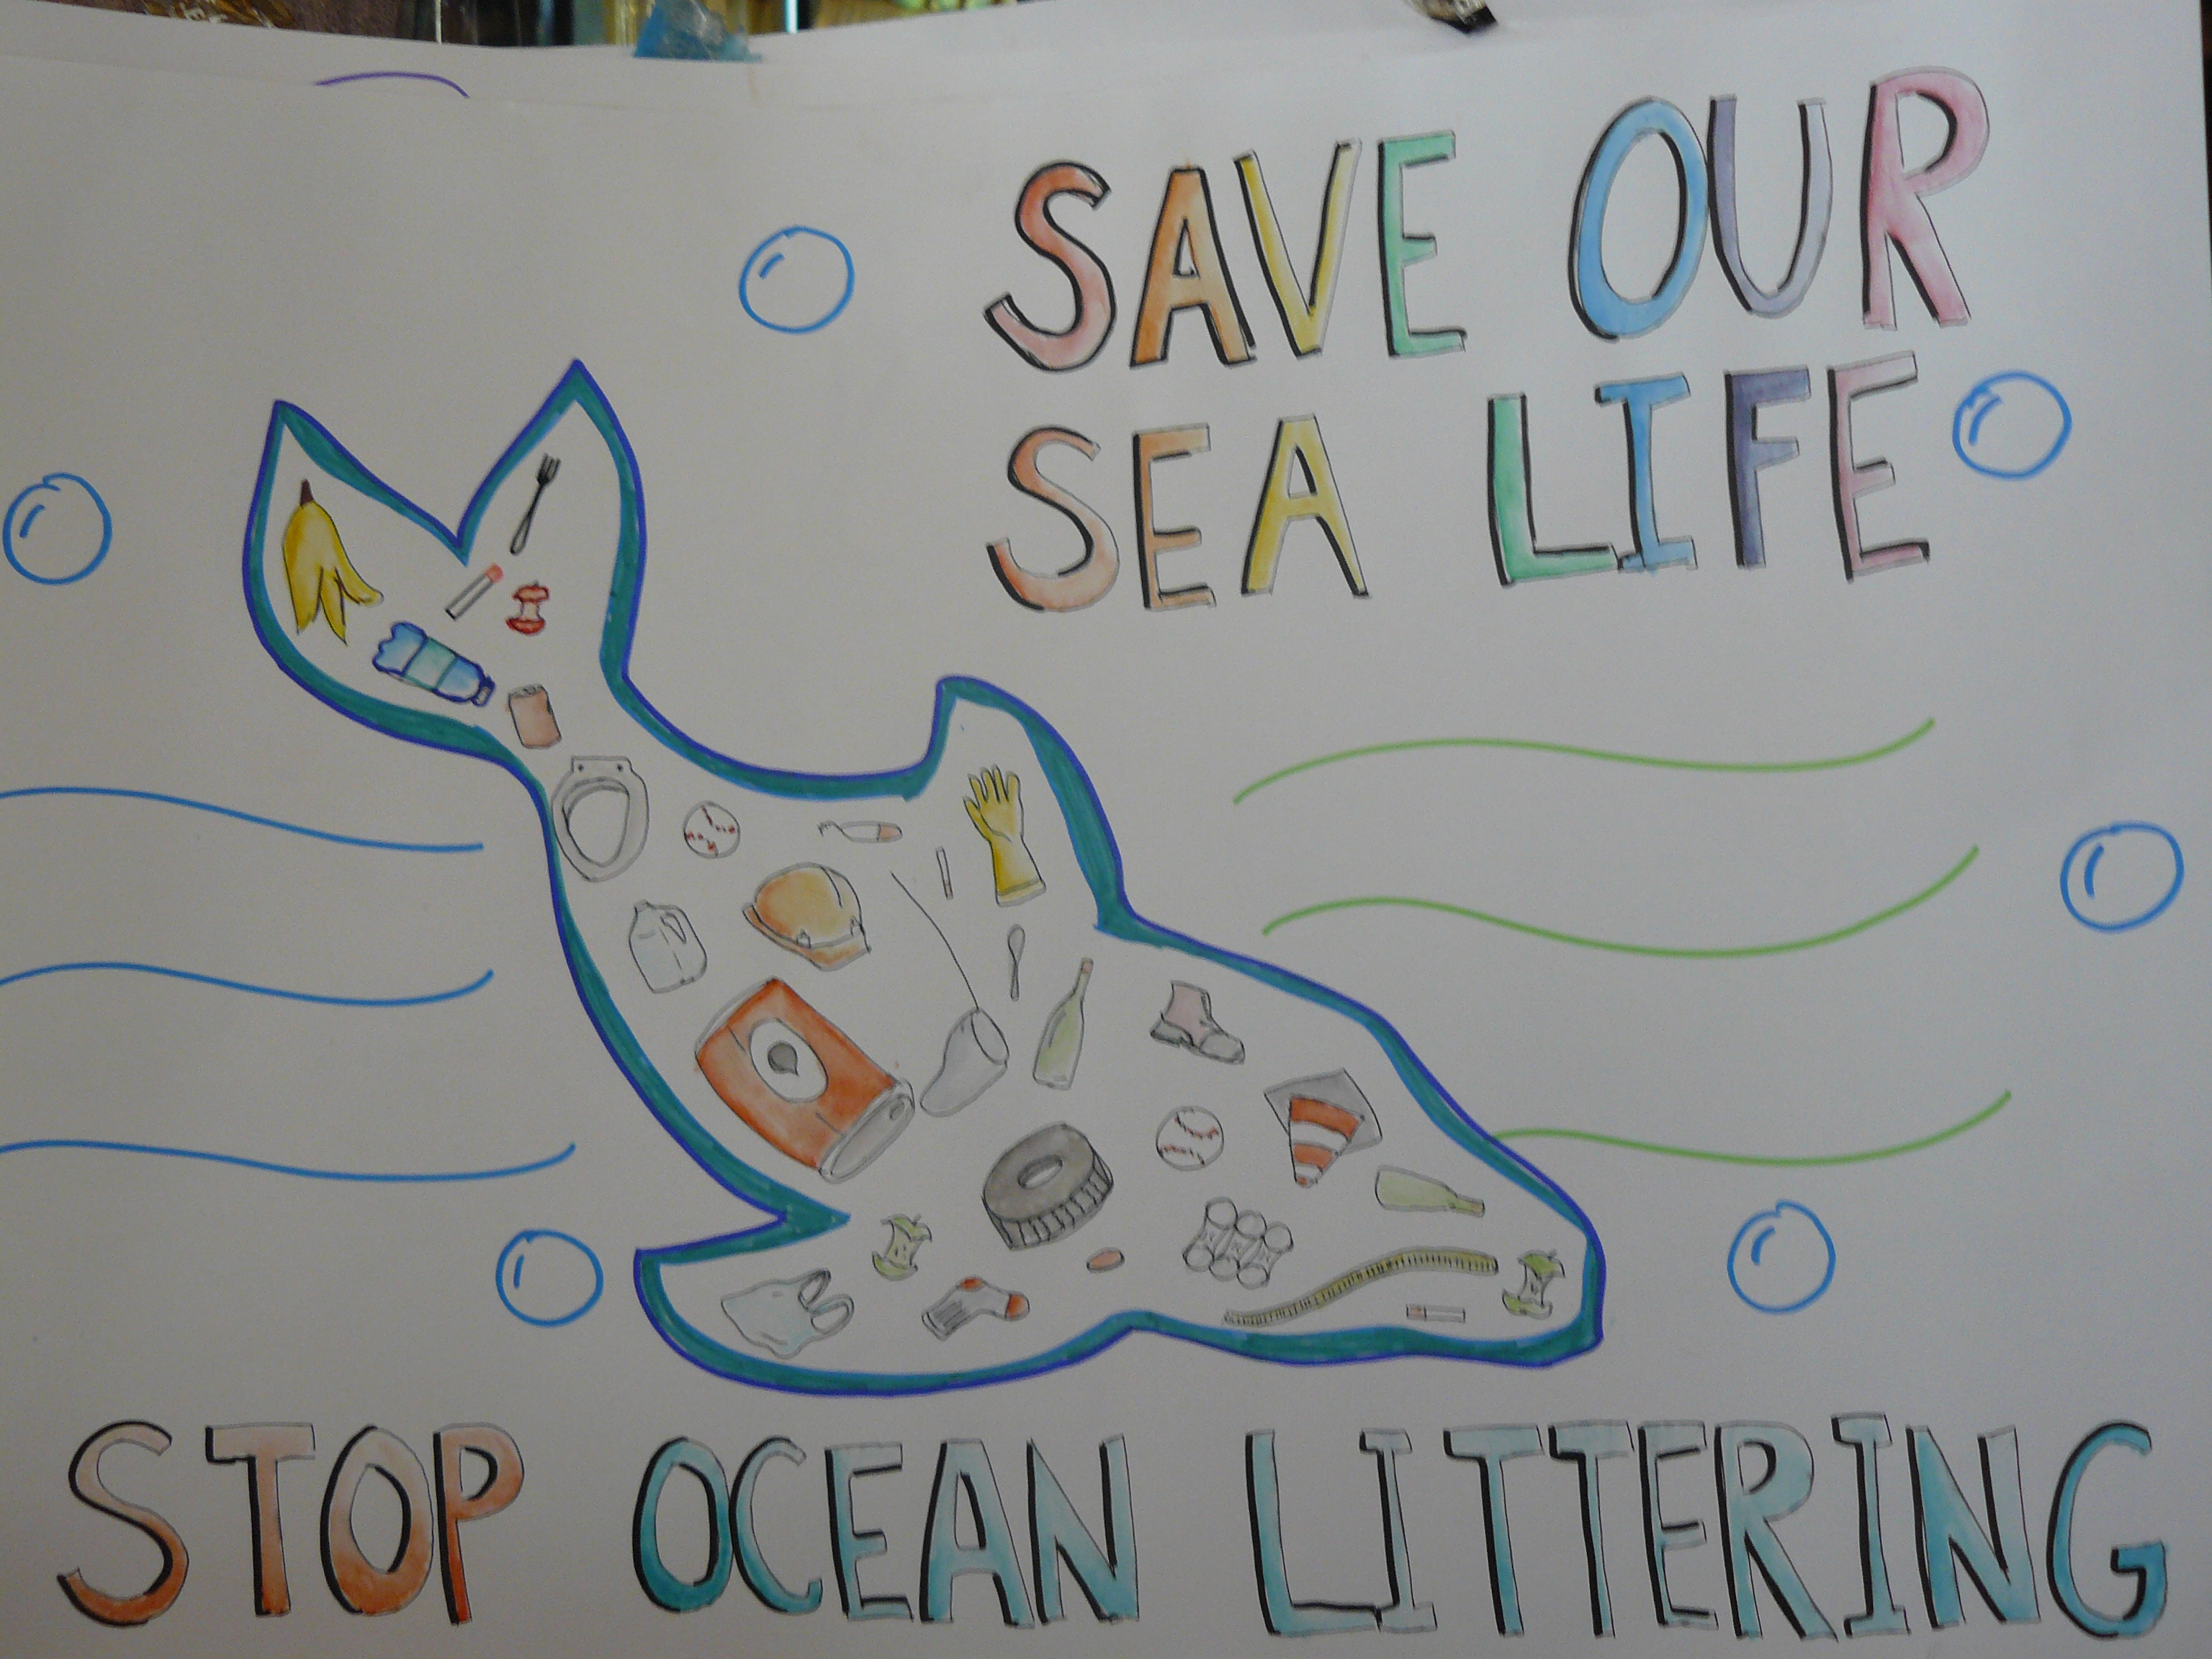 SAVE OUR
SEA LIFE
STOP OCEAN LITTERING